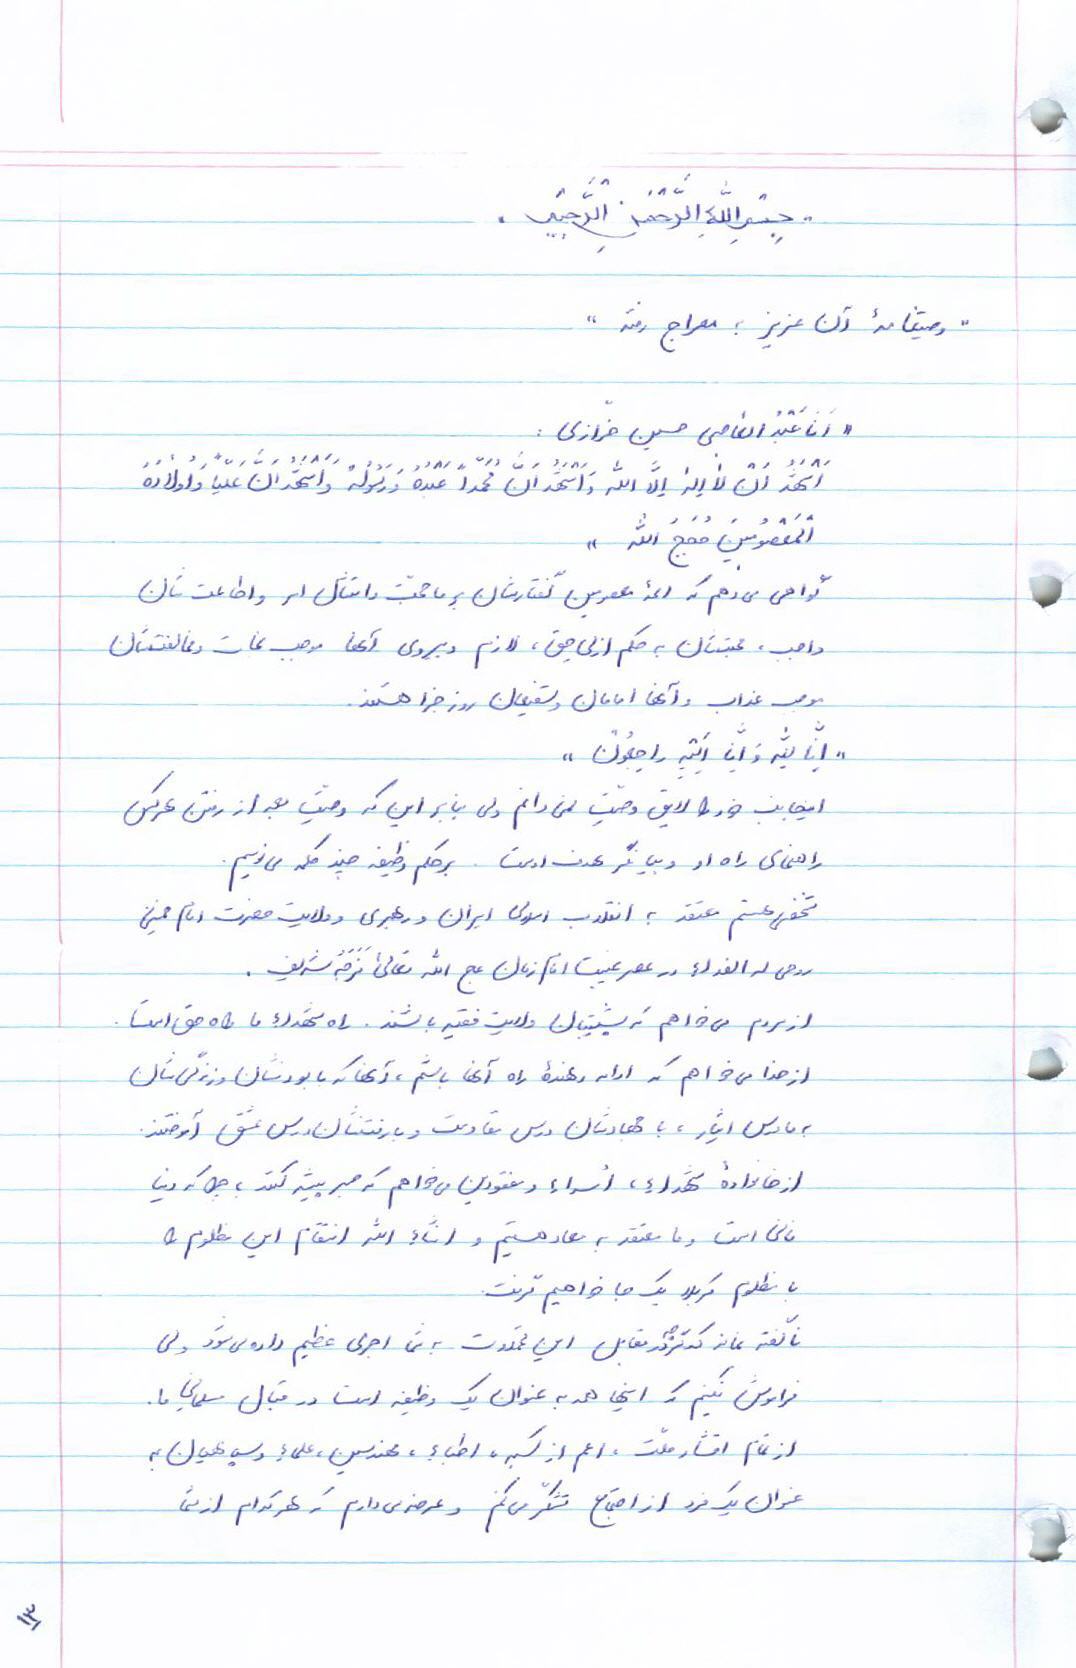 « بِسْمِ اللَّهِ الرَّحْمٰنِ الرَّحِیْمِ »
« وصیتنامهٔ آن عزیز به معراج رفته »
« اَنَا عَبْدُ العاصِی حسین خرّازی :
اَشْهَدُ اَنْ لاٰ اِلٰهَ اِلَّا اللّٰه وَاَشْهَدُ اَنَّ مُحَمَّداً عَبْدُهُ وَ رَسُولُهُ وَاَشْهَدُ اَنَّ عَلِیّاً وَ اَولادَهُ
الْمَعْصُومِینَ حُجَجُ اللّٰه »
گواهی می‌دهم که ائمهٔ معصومین گفتارشان بر ما حجّت و امتثال امر و اطاعت شان
واجب، محبتشان به حکم ازلی حق، لازم و پیروی آنها موجب نجات و مخالفتشان
موجب عذاب و آنها امامان و شفیعان روز جزا هستند.
« اِنَّا لِلّٰه وَ اِنَّا اِلَیْهِ راجِعُوْن »
اینجانب خود را لایق وصیّت نمی دانم ولی بنابر این که وصیّت بعد از رفتن هرکس
راهنمای راه او و بیانگر هدف اوست . بر حکم وظیفه چند کلمه می نویسم.
شخصی هستم معتقد به انقلاب اسلامی ایران و رهبری و ولایت حضرت امام خمینی
روحی له الفداء در عصر غیبت امام زمان عج الله تعالیٰ فَرَجَهُ شریف .
از مردم می خواهم که پشتیبان ولایت فقیه باشند. راه شهداء ما راه حق است.
از خدا می خواهم که ادامه دهندهٔ راه آنها باشم، آنها که با بودنشان و زندگی شان
به ما درس ایثار، با جهادشان درس مقاومت و با رفتنشان درس عشق آموختند.
از خانوادهٔ شهداء، اُسراء و مفقودین می خواهم که صبر پیشه کنند، چرا که دنیا
فانی است و ما معتقد به معاد هستیم و انشاء الله انتقام این مظلوم را
با مظلوم کربلا یک جا خواهیم گرفت.
ناگفته نماند که در مقابل این به شما اجری عظیم داده می شود ولی
فراموش نکنیم که اینها همه به عنوان یک وظیفه است در قبال مسلمانی ما.
از تمام اقشار ملّت، اعم از کسبه، اطباء، مهندسین، علماء و سپاهیان به
عنوان یک فرد از اجتماع تشکّر می کنم و عرضه می دارم که هر کدام از شما
۱۳